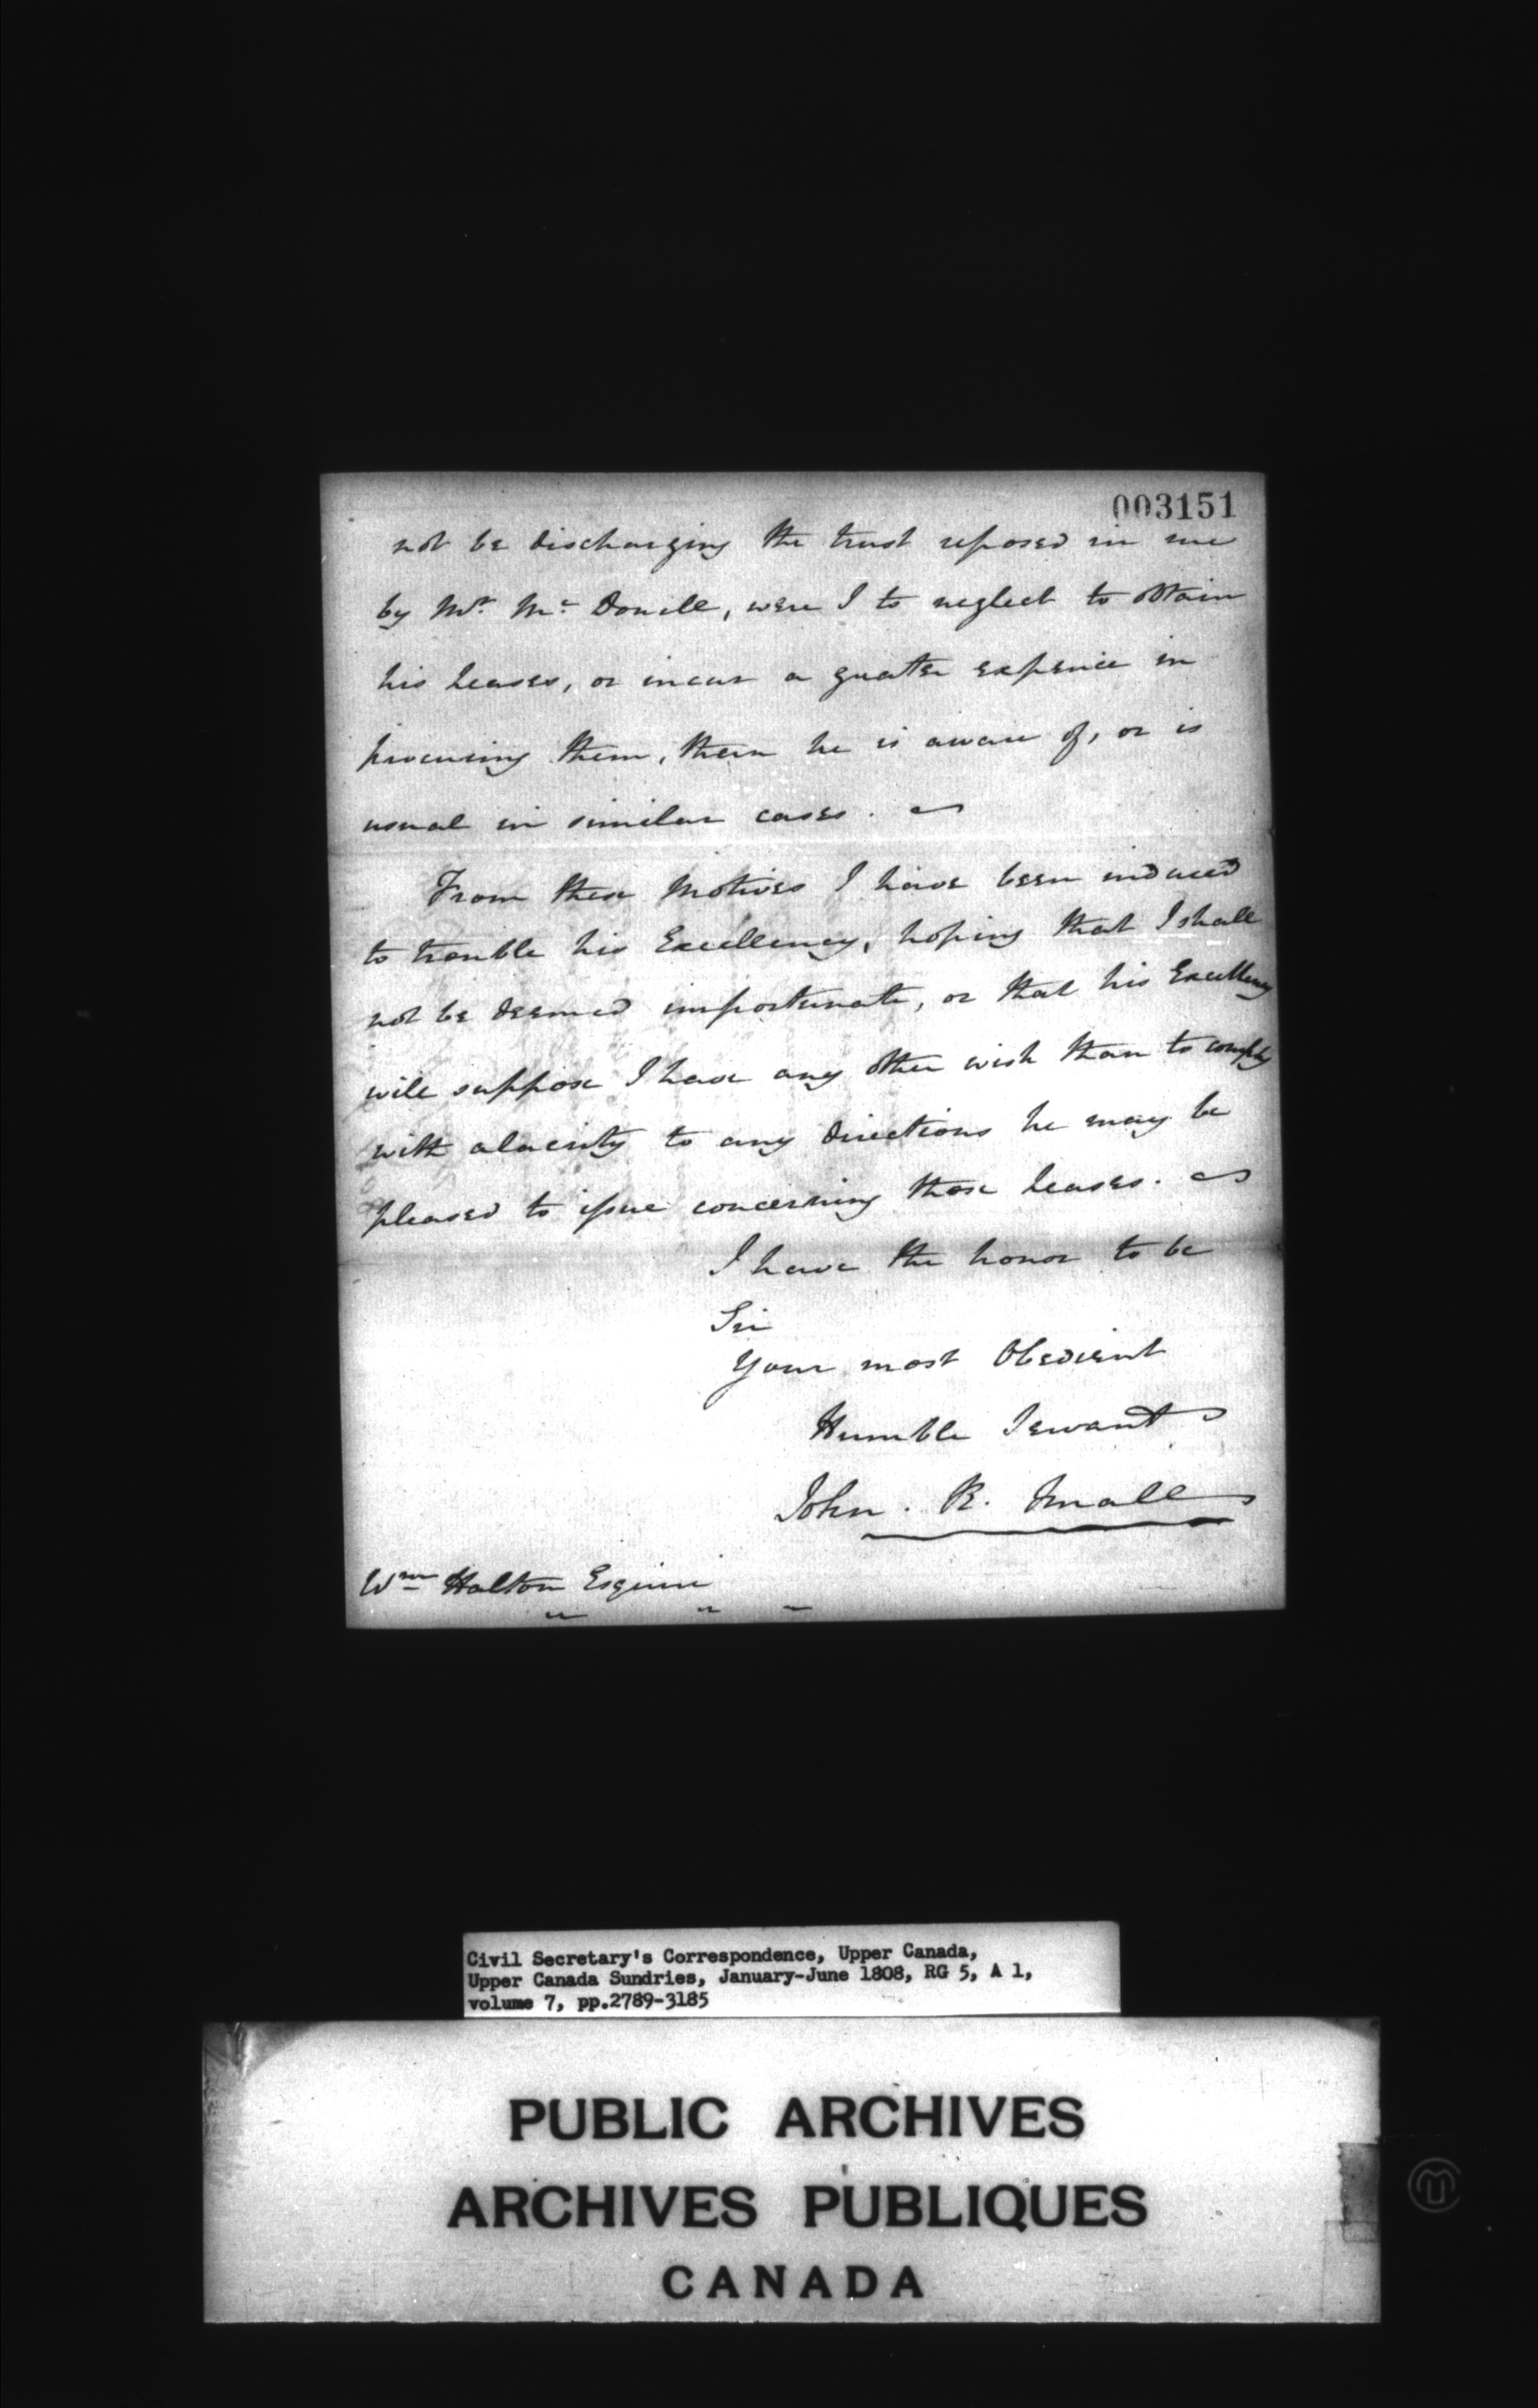 003151
not be discharging the trust reposed in me
by Mr. Mc. Donell, were I to neglect to obtain
his leases, or incur a greater expence in
procuring them, then he is aware of, or is
usual in similar cases.
From these Motives I have been induced
to trouble his Excellency, hoping that I shall
not be deemed importunate, or that his Excellency
will suppose I have any other wish than to comply
with alacrity to any directions he may be
pleased to issue concerning those leases.
I have the honor to be
Sir
Your most Obedient
Humble Servant
John. R. Small
Wm Halton Esquire
Civil Secretary's Correspondence, Upper Canada,
Upper Canada Sundries, January-June 1808, RG 5, A 1,
volume 7, pp.2789-3185
PUBLIC ARCHIVES
ARCHIVES PUBLIQUES
CANADA